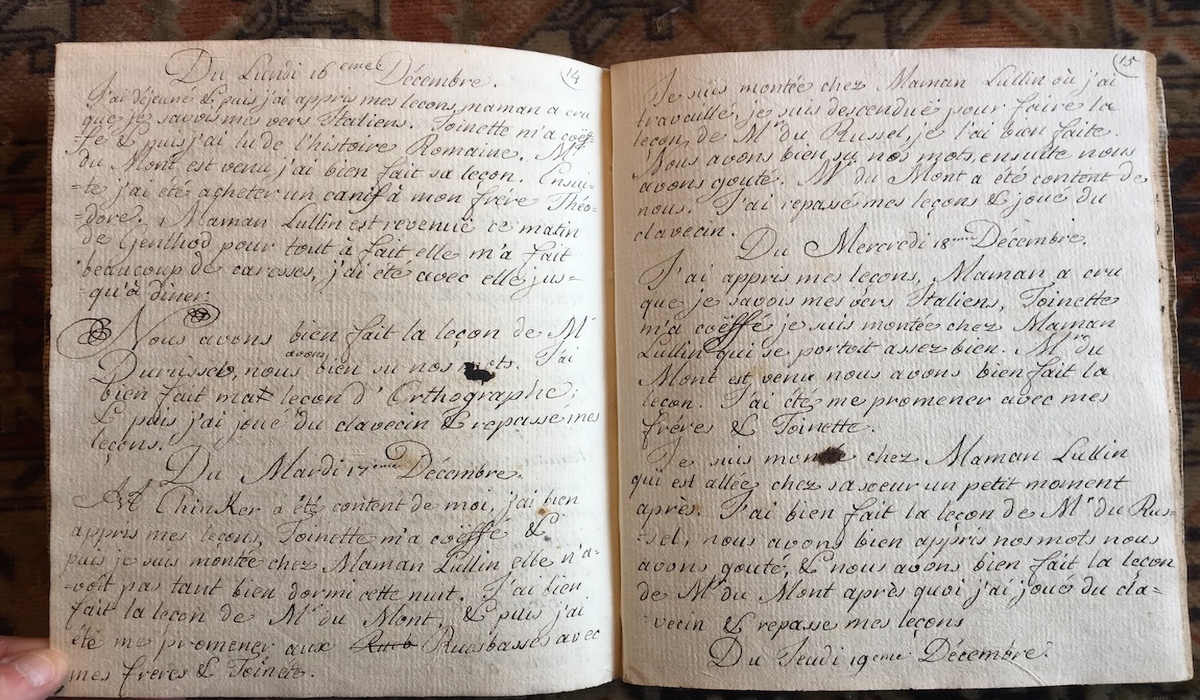 14
Du Lundi 16 eme Décembre.
J'ai déjeuné & puis j'ai appris mes lecons, maman a cru
que je savois mes vers Italiens. Toinette m'a coëf-
-fé & puis j'ai lu de l'histoire Romaine. Mr
du Mont est venu j'ai bien fait sa leçon. Ensui-
-te j'ai été acheter un canif à mon frère Théo-
-dore. Maman Lullin est revenuë ce matin
de Genthod pour tout à fait, elle m'a fait
beaucoup de caresses, j'ai été avec elle jus-
-qu'à diner.
Nous avons bien fait la leçon de Mr
avons
nous bien su nos mots. J'ai
bien fait leçon d'Orthographe;
& puis j'ai joué du clavecin & repassé mes
leçons.
Du Mardi 17 eme Décembre.
Mr Thinker a été content de moi, j'ai bien
appris mes leçons, Toinette m'a coëffé &
puis je suis montée chez Maman Lullin elle n'a-
-voit pas tant bien dormi cette nuit. J'ai bien
fait la leçon de Mr du Mont, & puis j'ai
été me promener aux Ruesbasses avec
mes frères & Toinete.
15
Je suis montée chez Maman Lullin où j'ai
travaillé, je suis descenduë pour faire la
leçon, de Mr du Russel, je l'ai bien faite.
Nous avons bien su nos mots, ensuite nous
avons gouté. Mr du Mont a été content de
nous. J'ai repassé mes leçons & joué du
clavecin.
Du Mercredi 18 eme Décembre.
J'ai appris mes leçons, Maman a cru
que je savois mes vers Italiens, Toinette
m'a coëffé je suis montée chez Maman
Lullin qui se portoit assez bien. Mr du
Mont est venu nous avons bien fait la
leçon. J'ai été me promener avec mes
frères & Toinette.
Je suis montée chez Maman Lullin
qui est allée chez sa soeur un petit moment
après. J'ai bien fait la leçon de Mr du Rus-
-sel, nous avons bien appris nos mots nous
avons gouté, & nous avons bien fait la leçon
de Mr du Mont après quoi j'ai joué du cla-
-vecin & repassé mes leçons
Du Jeudi 19 eme Décembre.